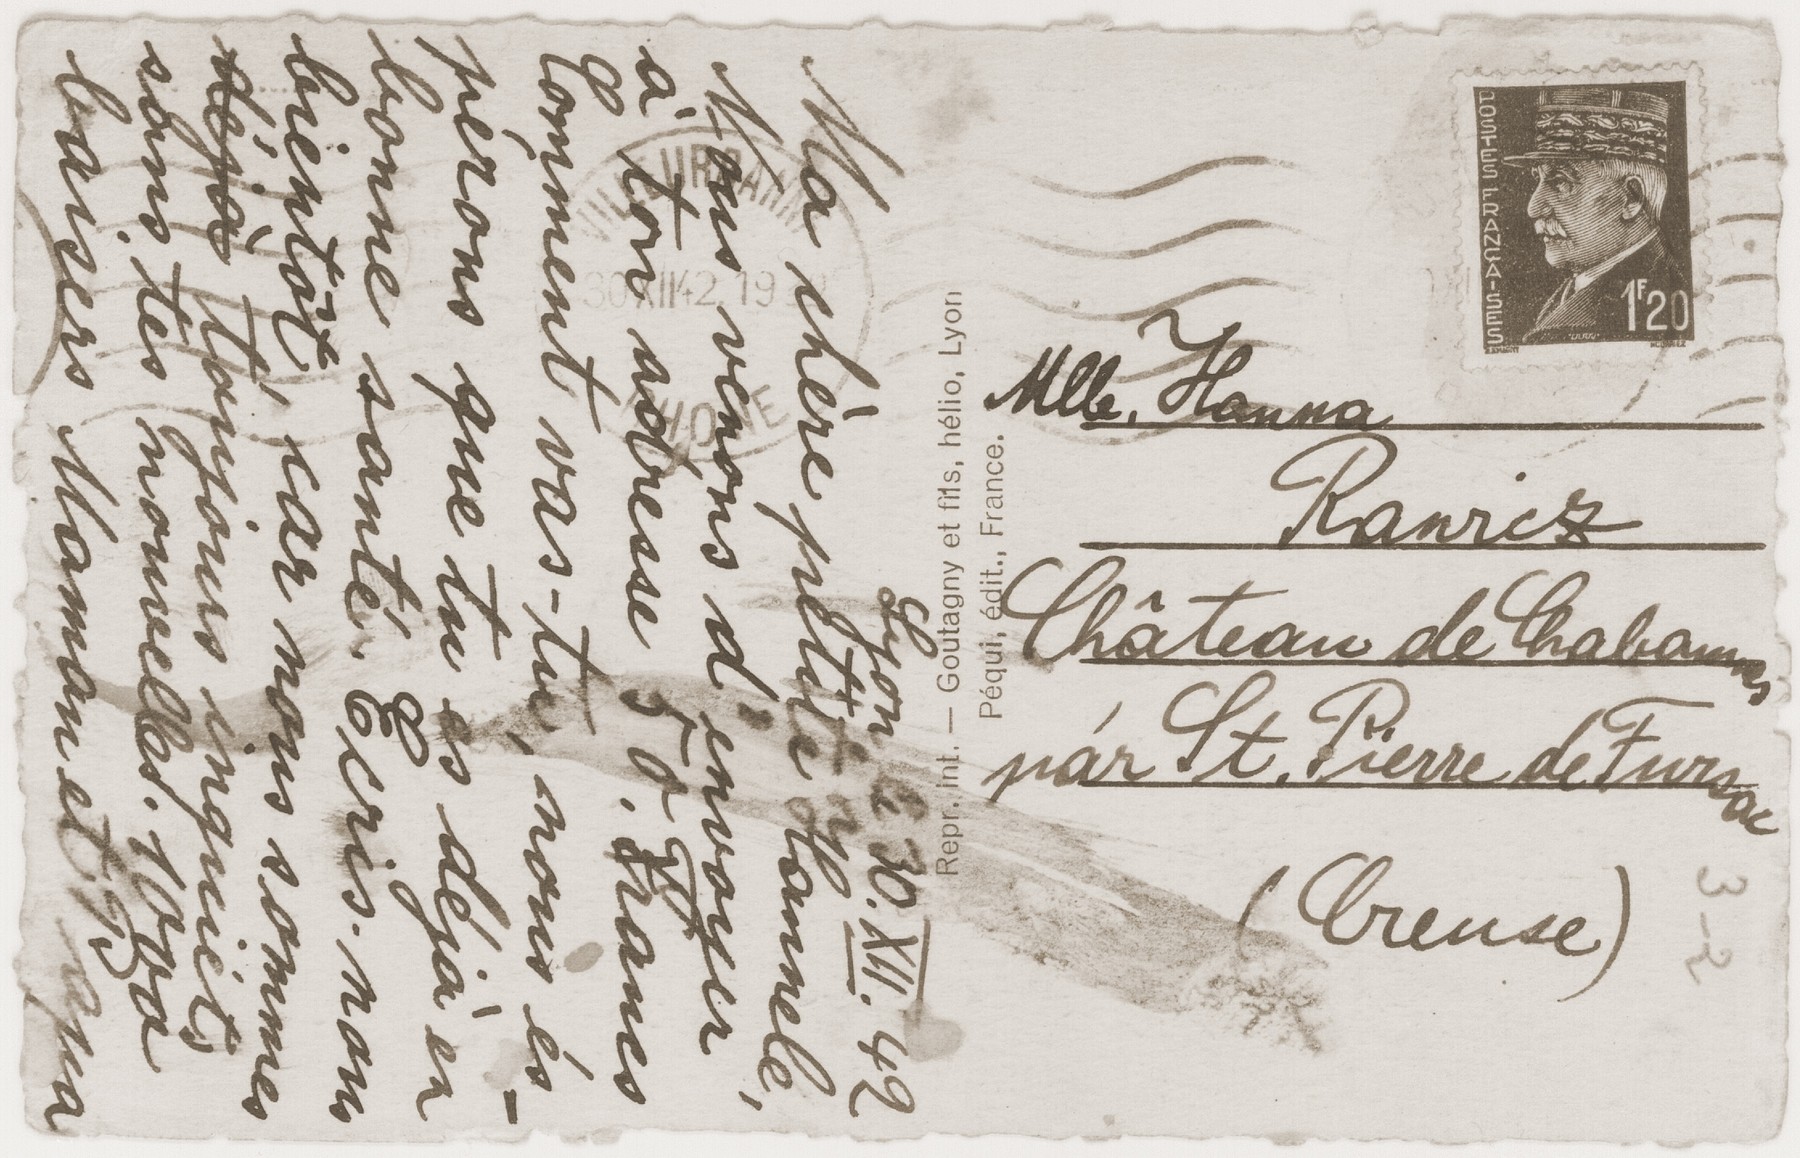 Lyon le 30.XII.42
Ma chère petite Hannele,
Nous venons d'envoyer
à ton adresse 50. francs
Comment vas-tu, nous és-
pérons que tu es déjà en
bonne santé. Ecris-nous
bientôt, car nous sommes
déjà toujours inquiéts
sans tes nouvelles. 1000
baisers Maman et Papa
Repr. int. — Goutagny et fils, hélio, Lyon
Péqui, édit., France.
POSTES FRANÇAISES
1F20
VILLEURBANNE
30 XII 42
RHONE
Mlle. Hanna
Kawicz
Château de Chabannes
pár St. Pierre de Fursac
(Creuse)
3-2